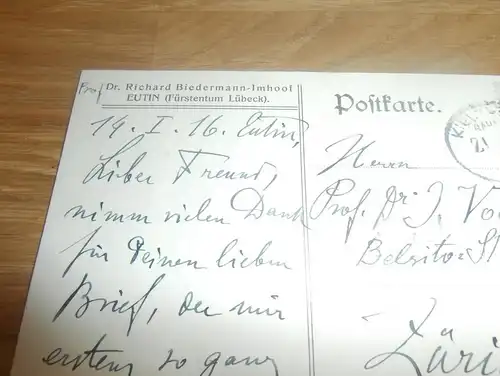 Prof
Dr. Richard Biedermann-Imhoof
EUTIN (Fürstentum Lübeck).
19. I. 16. Eutin,
Lieber Freund,
nimm vielen Dank
für Deinen lieben
Brief, der mir
erstens so ganz
Postkarte.
Herrn
Prof. Dr. J. Vo
Belsito-St
Züri